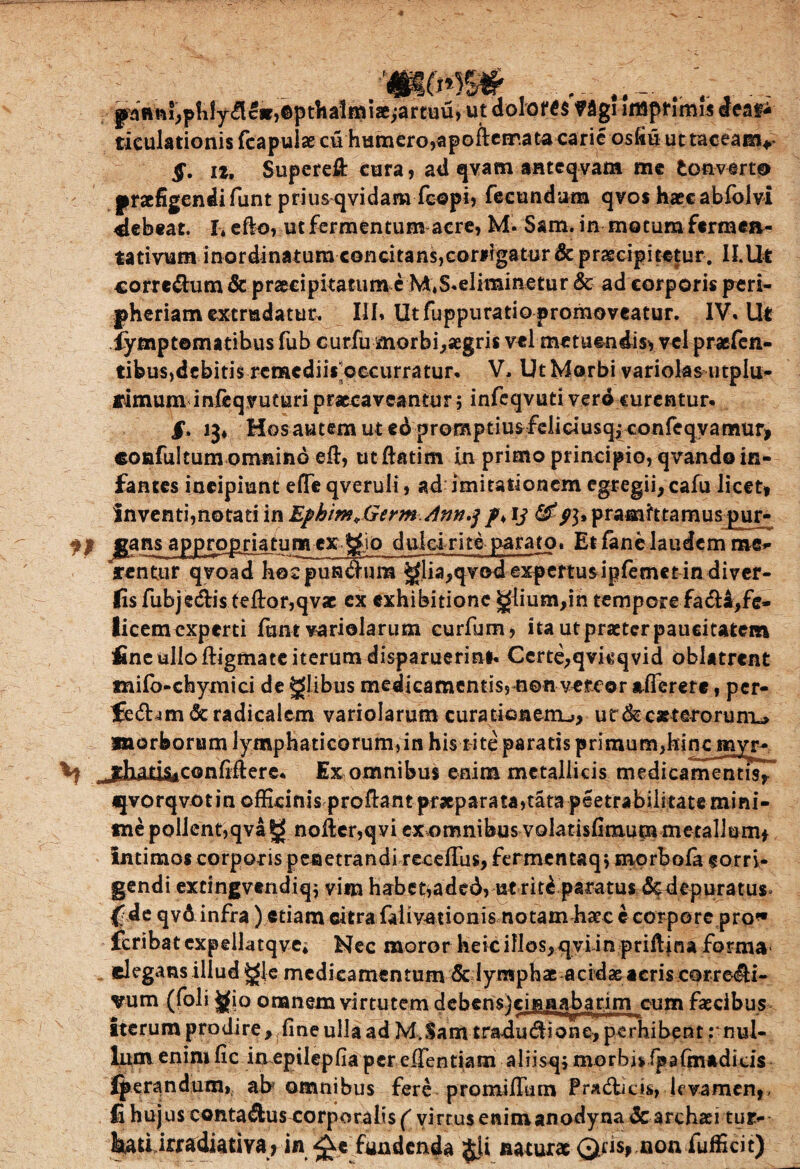 panni, phlyctæ, opthalmiæ, artuū, ut dolores vagi imprimis dear-
ticulationis scapulæ cū humero, apostemata carie ossiū ut taceam.
§. 12. Superest cura, ad qvam anteqvam me converto
præfigendi sunt prius qvidam scopi, secundum qvos hæc absolvi
debeat. I. esto, ut fermentum acre, M. Sam. in motum fermen-
tativum inordinatum concitans, corrigatur & præcipitetur. II. Ut
correctum & præcipitatum è M. S. eliminetur & ad corporis peri-
pheriam extrudatur. III. Ut suppuratio promoveatur. IV. Ut
symptomatibus sub cursu morbi, ægris vel metuendis, vel præsen-
tibus, debitis remediis occurratur. V. Ut Morbi variolas utplu-
rimum inseqvuturi præcaveantur; inseqvuti verò curentur.
§. 13. Hos autem ut eò promptius feliciusq; conseqvamur,
consultum omninò est, ut statim in primo principio, qvando in-
fantes incipiunt esse qveruli, ad imitationem egregii, casu licet,
inventi, notati in Ephim. Germ. Ann. 3 p. 13 & 93, præmittamus pur-
gans appropriatum ex ☿io dulci ritè parato. Et sanè laudem me-
rentur qvoad hoc punctum ☿lia, qvod expertus ipsemet in diver-
sis subjectis testor, qvæ ex exhibitione ☿lium, in tempore factâ, fe-
licem experti sunt variolarum cursum, ita ut præter paucitatem
sine ullo stigmate iterum disparuerint. Certè, qvicqvid oblatrent
miso-chymici de ☿libus medicamentis, non vereor asserere, per-
fectam & radicalem variolarum curationem, ut & cæterorum
morborum lymphaticorum, in his ritè paratis primum, hinc myr-
rhatis, consistere. Ex omnibus enim metallicis medicamentis,
qvorqvot in officinis prostant præparata, tātā pēetrabilitate mini-
mè pollent, qvā ☿ noster, qvi ex omnibus volatissimum metallum,
intimos corporis penetrandi recessus, fermentaq; morbosa corri-
gendi extingvendiq; vim habet, adeò, ut ritè paratus & depuratus
(de qvô infra) etiam citra salivationis notam hæc è corpore pro-
scribat expellatqve. Nec moror heic illos, qvi in pristina forma
elegans illud ☿le medicamentum & lymphæ acidæ acris correcti-
vum (soli ☿io omnem virtutem debens) cinnabarim cum fæcibus
iterum prodire, sine ulla ad M. Sam traductione, perhibent: nul-
lum enim sic in epilepsia per essentiam aliisq; morbis spasmadicis
sperandum, ab omnibus ferè promissum Practicis, levamen,
si hujus contactus corporalis (virtus enim anodyna & archæi tur-
bati irradiativa, in fundenda naturæ non sufficit)